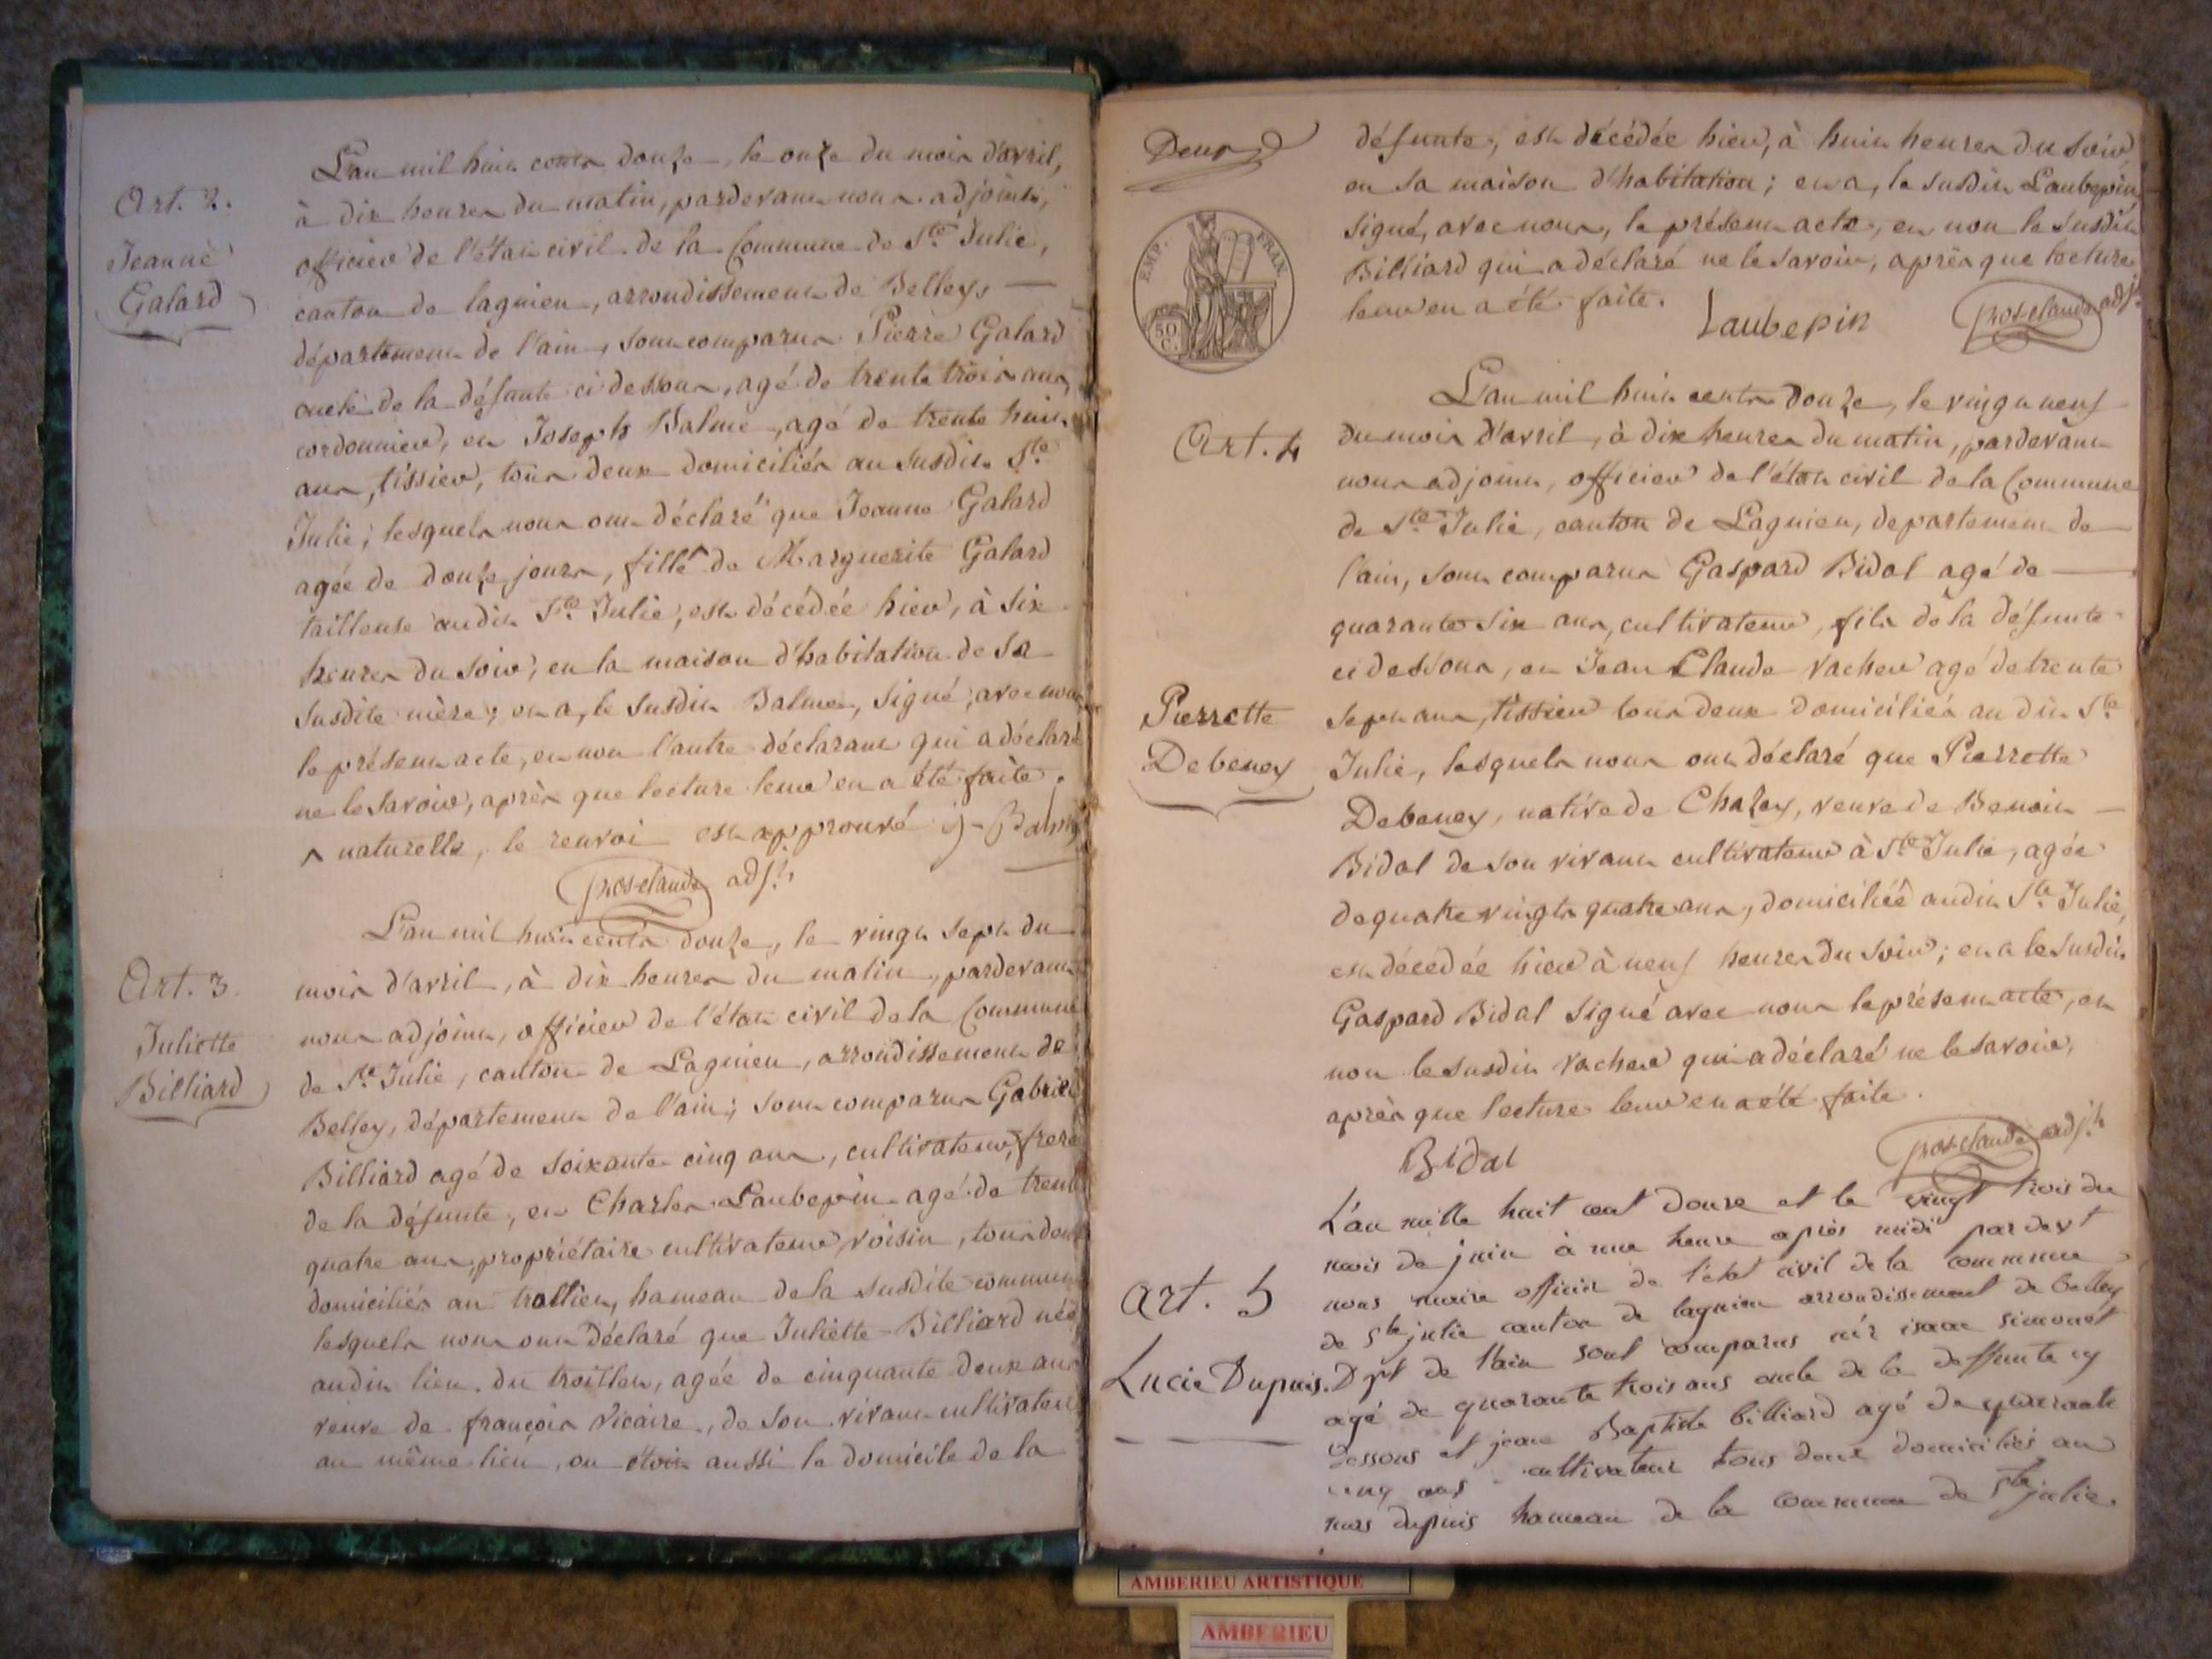 Art. 2.
Jeanne
Galard
L'an mil huit cents douze, le onze du mois d'avril,
à dix heures du matin, pardevant nous adjoint,
officier de l'état civil de la Commune de Ste Julie,
canton de lagnieu, arrondissement de Belley,
département de l'ain, sont comparus Pierre Galard
oncle de la défunte ci dessous, agé de trente trois ans,
cordonnier, et Joseph Balme, agé de trente huit
ans, tissier, tous deux domiciliés au susdit Ste
Julie; lesquels nous ont déclaré que Jeanne Galard
agée de douze jours, fille ^ de Marguerite Galard
tailleuse audit Ste Julie, est décédée hier, à six
heures du soir, en la maison d'habitation de sa
susdite mère; et a, le susdit Balme, signé, avec nous
le présent acte, et non l'autre déclarant qui a déclaré
ne le savoir, après que lecture leur en a été faite.
^ naturelle, le renvoi est approuvé J- Balme
proselaude adj.t
Art. 3.
Juliette
Billiard
L'an mil huit cents douze, le vingt sept du
mois d'avril, à dix heures du matin, pardevant
nous adjoint, officier de l'état civil de la Commune
de Ste Julie, canton de Lagnieu, arrondissement de
Belley, département de l'ain; sont comparus Gabriel
Billiard agé de soixante cinq ans, cultivateur, frere
de la défunte, et Charles Laubepin agé de trente
quatre ans, propriétaire cultivateur, voisin, tous deux
domiciliés au trollieu, hameau de la susdite commune
lesquels nous ont déclaré que Juliette Billiard née
audit lieu du trollieu, agée de cinquante deux ans
veuve de françois Vicaire, de son vivant cultivateur
au même lieu, ou étoit aussi le domicile de la
Deux
EMP. FRAN.
50 C.
défunte, est décédée hier, à huit heures du soir,
en sa maison d'habitation; et a, le susdit Laubepin
signé, avec nous, le présent acte, et non le susdit
Billiard qui a déclaré ne le savoir, après que lecture
leur en a été faite.
Laubepin
proselaude adj.t
Art. 4
Pierrette
Debeney
L'an mil huit cents douze, le vingt neuf
du mois d'avril, à dix heures du matin, pardevant
nous adjoint, officier de l'état civil de la Commune
de Ste Julie, canton de Lagnieu, departement de
l'ain, sont comparus Gaspard Bidal agé de
quarante six ans, cultivateur, fils de la défunte
ci dessous, et Jean Claude Vacher agé de trente
sept ans, tissier tous deux domiciliés au dit Ste
Julie, lesquels nous ont déclaré que Pierrette
Debeney, native de Chazey, veuve de Benoit
Bidal de son vivant cultivateur à Ste Julie, agée
de quatre vingts quatre ans, domiciliée audit Ste Julie,
est décédée hier à neuf heures du soir; et a le susdit
Gaspard Bidal signé avec nous le présent acte, et
non le susdit Vacher qui a déclaré ne le savoir,
après que lecture leur en a été faite.
Bidal
proselaude adj.t
Art. 5
Lucie Dupuis.
L'an mille huit cent douze et le vingt trois du
mois de juin à une heure après midi par devt
nous maire officier de l'état civil de la commune
de Ste julie canton de lagnieu arrondissement de belley
Dpt de l'ain sont comparus isaac simonet
agé de quarante trois ans oncle de la deffunte cy
dessous et jean Baptiste billiard agé de quarante
cinq ans cultivateur tous deux domiciliés au
mas dupuis hameau de la commune de Ste julie.
AMBERIEU ARTISTIQUE
AMBERIEU